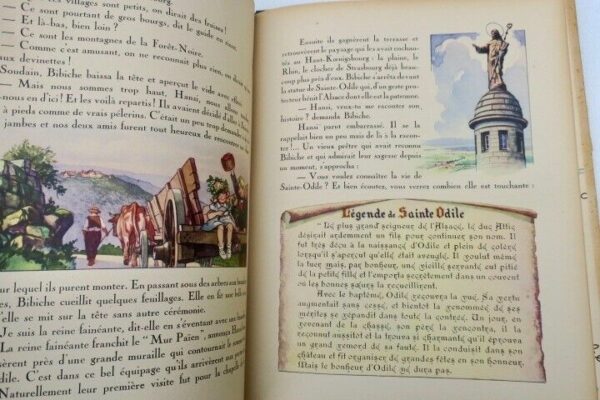 — Ces villages sont petits, on dirait des fraises!
— Ce sont pourtant de gros bourgs, dit le guide en riant.
— Et là-bas, bien loin?
— Ce sont les montagnes de la Forêt-Noire.
— Comme c'est amusant, on ne reconnaît plus rien, on
aux devinettes!
Soudain, Bibiche baissa la tête et aperçut le vide avec
— Mais nous sommes trop haut, Hansi, nous allons
nous en d'ici! Et les voilà repartis! Ils avaient décidé d'aller
à pieds comme de vrais pèlerins. C'était un peu trop demander
jambes et nos deux amis furent tout heureux de rencontrer un
sur lequel ils purent monter. En passant sous des arbres aux
Bibiche cueillit quelques feuillages. Elle en fit une
elle se mit sur la tête sans autre cérémonie.
Je suis la reine fainéante, dit-elle en s'éventant avec une
La reine fainéante franchit le " Mur Païen „
près d'une grande muraille qui contournait le
dile. C'est dans ce bel équipage qu'ils arrivèrent aux
Naturellement leur première visite fut pour la chapelle
Ensuite ils gagnèrent la terrasse et
retrouvèrent le paysage qui les avait enchan-
tés au Haut-Kœnigsbourg : la plaine, le
Rhin, le clocher de Strasbourg déjà beau-
coup plus près d'eux. Bibiche s'arrêta devant
la statue de Sainte-Odile qui, d'un geste pro-
tecteur bénit l'Alsace dont elle est la patronne.
— Hansi, veux-tu me raconter son
histoire? demanda Bibiche.
Hansi parut embarrassé. Il se la
rappelait bien un peu mais de là à la racon-
ter!... Un vieux prêtre qui avait reconnu
Bibiche et qui admirait leur sagesse depuis
un moment, s'approcha :
— Vous voulez connaître la vie de
Sainte-Odile? Et bien écoutez, vous verrez combien elle est touchante :
Légende de Sainte Odile
Le plus grand seigneur de l'Alsace, le duc Attic
désirait ardemment un fils pour continuer son nom. Il
fut très déçu à la naissance d'Odile et plein de colère
lorsqu'il s'aperçut qu'elle était aveugle. Il voulut même
la tuer mais, par bonheur, une vieille servante eut pitié
de la petite fille et l'emporta secrètement dans un couvent
où les bonnes sœurs la recueillirent.
Avec le baptême, Odile recouvra la vue. Sa vertu
augmentait sans cesse, et bientôt la renommée de ses
mérites se répandit dans toute la contrée. Un jour, en
revenant de la chasse, son père la rencontra, il la
reconnut aussitôt et la trouva si charmante qu'il éprouva
un grand remord de sa faute. Il la conduisit dans son
château et fit organiser de grandes fêtes en son honneur.
Mais, le bonheur d'Odile ne dura pas.